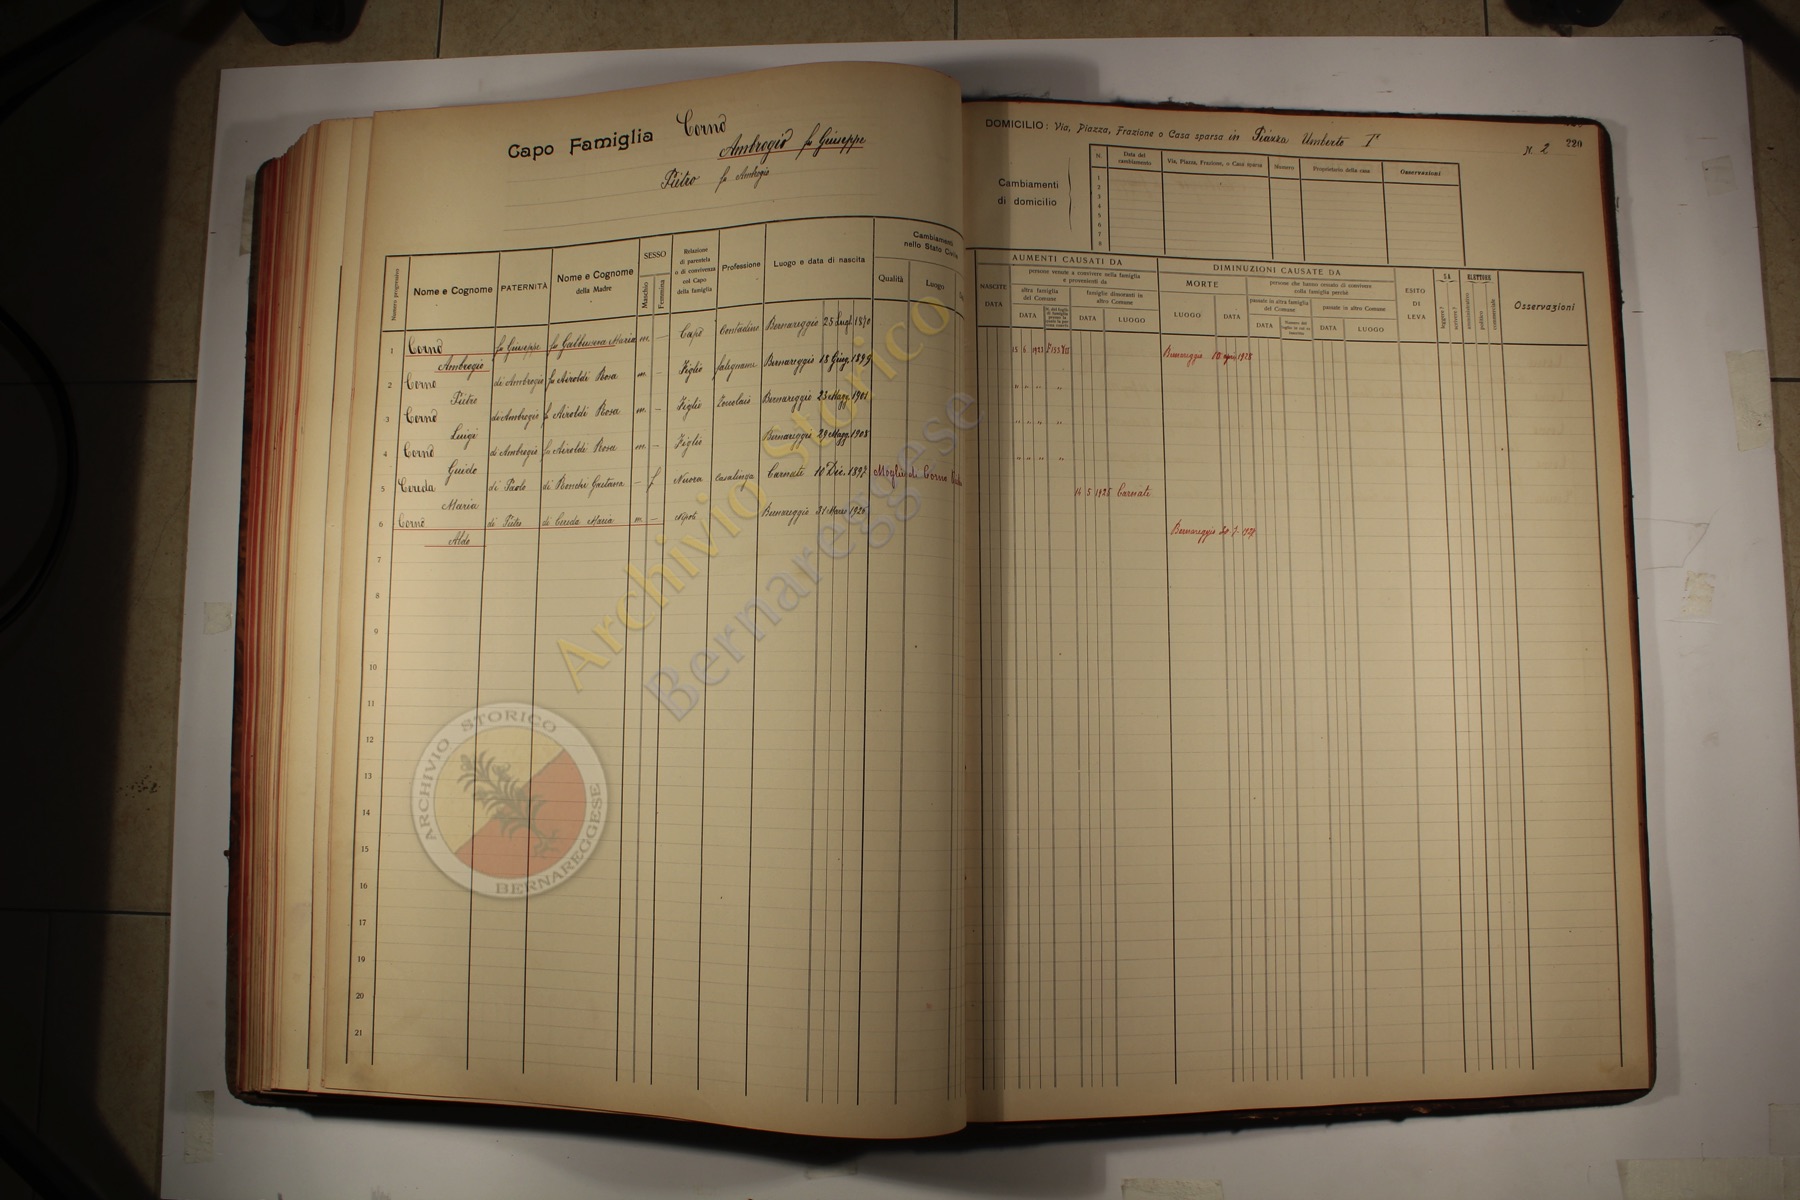 Capo Famiglia Cornò
Ambrogio fu Giuseppe
Pietro fu Ambrogio
DOMICILIO: Via, Piazza, Frazione o Casa sparsa in Piazza Umberto I°
N. 2
220
Cambiamenti
di domicilio
N. Data del cambiamento Via, Piazza, Frazione, o Casa sparsa Numero Proprietario della casa Osservazioni
1
2
3
4
5
6
7
8
Numero progressivo
Nome e Cognome
PATERNITÀ
Nome e Cognome
della Madre
SESSO
Maschio
Femmina
Relazione
di parentela
o di convivenza
col Capo
della famiglia
Professione
Luogo e data di nascita
Cambiamenti
nello Stato Civile
Qualità
Luogo
AUMENTI CAUSATI DA
NASCITE
DATA
persone venute a convivere nella famiglia
e provenienti da
altra famiglia
del Comune
DATA
famiglie dimoranti in
altro Comune
DATA
LUOGO
DIMINUZIONI CAUSATE DA
MORTE
LUOGO
DATA
persone che hanno cessato di convivere
colla famiglia perchè
passate in altra famiglia
del Comune
DATA
passate in altro Comune
DATA
LUOGO
ESITO
DI
LEVA
SA
leggere?
scrivere?
ELETTORE
amministrativo
politico
commerciale
Osservazioni
1 Cornò fu Giuseppe fu Galbusera Maria m. — Capo Contadino Bernareggio 25 Lugl. 1870 15 6 1923 Bernareggio 10 1928
Ambrogio
2 Cornò di Ambrogio fu Airoldi Rosa m. — Figlio falegname Bernareggio 18 Giug. 1899 " " " "
Pietro
3 Cornò di Ambrogio fu Airoldi Rosa m. — Figlio Bernareggio 23 Magg. 1901 " " " "
Luigi
4 Cornò di Ambrogio fu Airoldi Rosa m. — Figlio Bernareggio 29 Magg. 1908 " " " "
Guido
5 Cereda di Paolo di Ronchi Gaetana — f Nuora casalinga Carnate 10 Dic. 1897 Moglie di Corno 14 5 1925 Carnate
Maria
6 Cornò di Pietro di Cereda Maria m. — Nipote Bernareggio 31 Marzo 1926 Bernareggio 30 7
Aldo
7
8
9
10
11
12
13
14
15
16
17
18
19
20
21
Archivio Storico
Bernareggese
ARCHIVIO STORICO
BERNAREGGESE